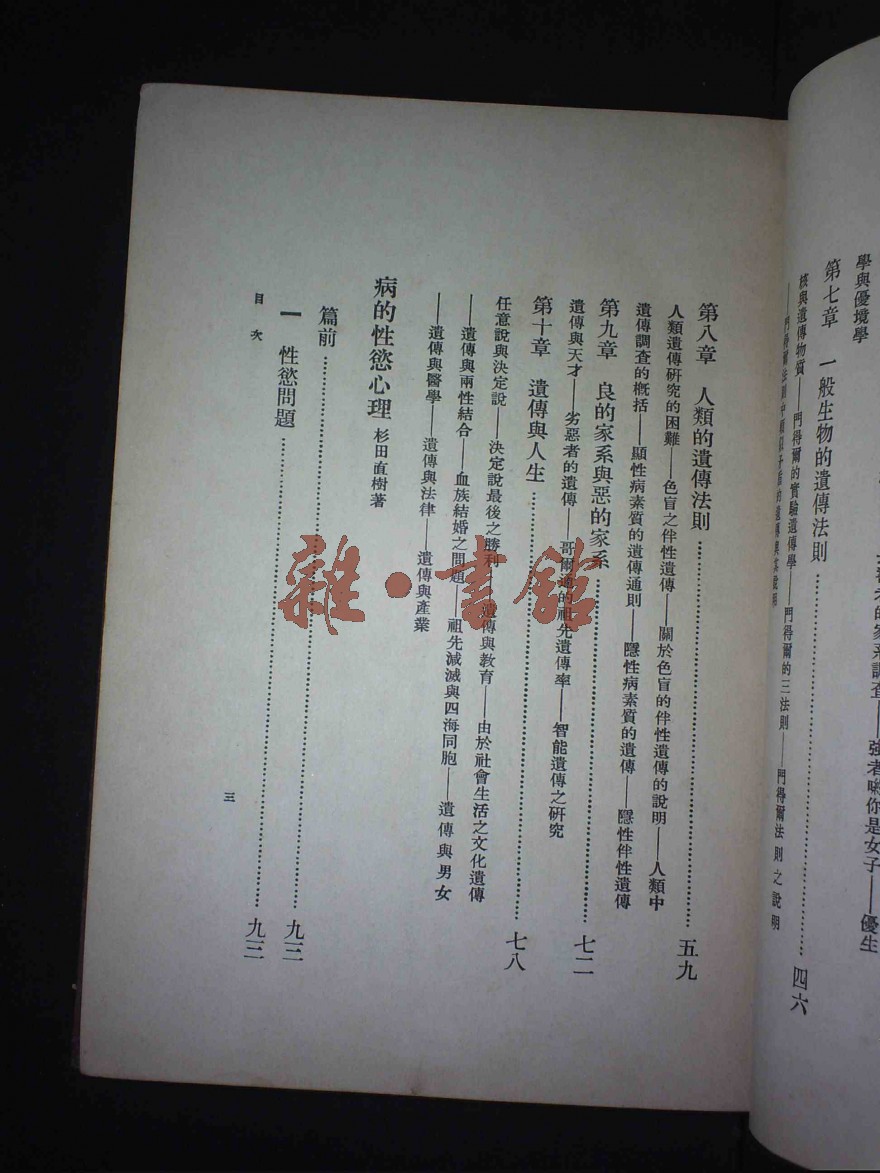 學與優境學
第七章　一般生物的遺傳法則…………四六
核與遺傳物質——門得爾的實驗遺傳學——門得爾的三法則——門得爾法則之說明
第八章　人類的遺傳法則…………五九
人類遺傳研究的困難——色盲之伴性遺傳——關於色盲的伴性遺傳的說明——人類中
遺傳調查的概括——顯性病素質的遺傳通則——隱性病素質的遺傳——隱性伴性遺傳
第九章　良的家系與惡的家系…………七二
遺傳與天才——劣惡者的遺傳——哥爾通的祖先遺傳率——智能遺傳之研究
第十章　遺傳與人生…………七八
任意說與決定說——決定說最後之勝利——遺傳與教育——由於社會生活之文化遺傳
——遺傳與兩性結合——血族結婚之問題——祖先減滅與四海同胞——遺傳與男女
——遺傳與醫學——遺傳與法律——遺傳與產業
病的性慾心理　杉田直樹著
篇前…………九三
一　性慾問題…………九三
目次
三
雜·書館